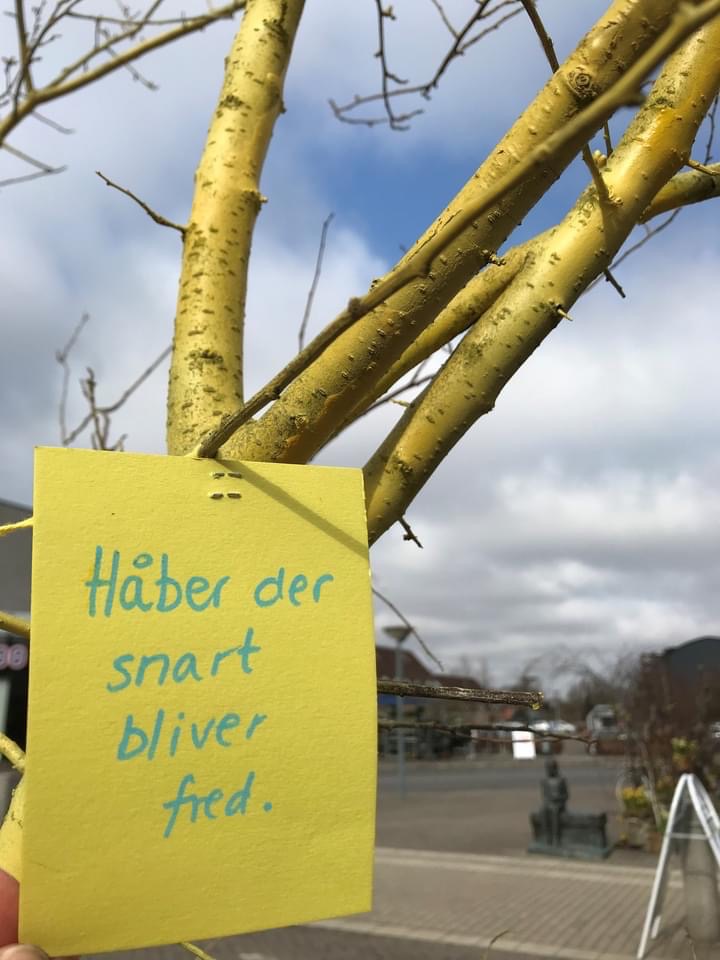 Håber der
snart
bliver
fred.